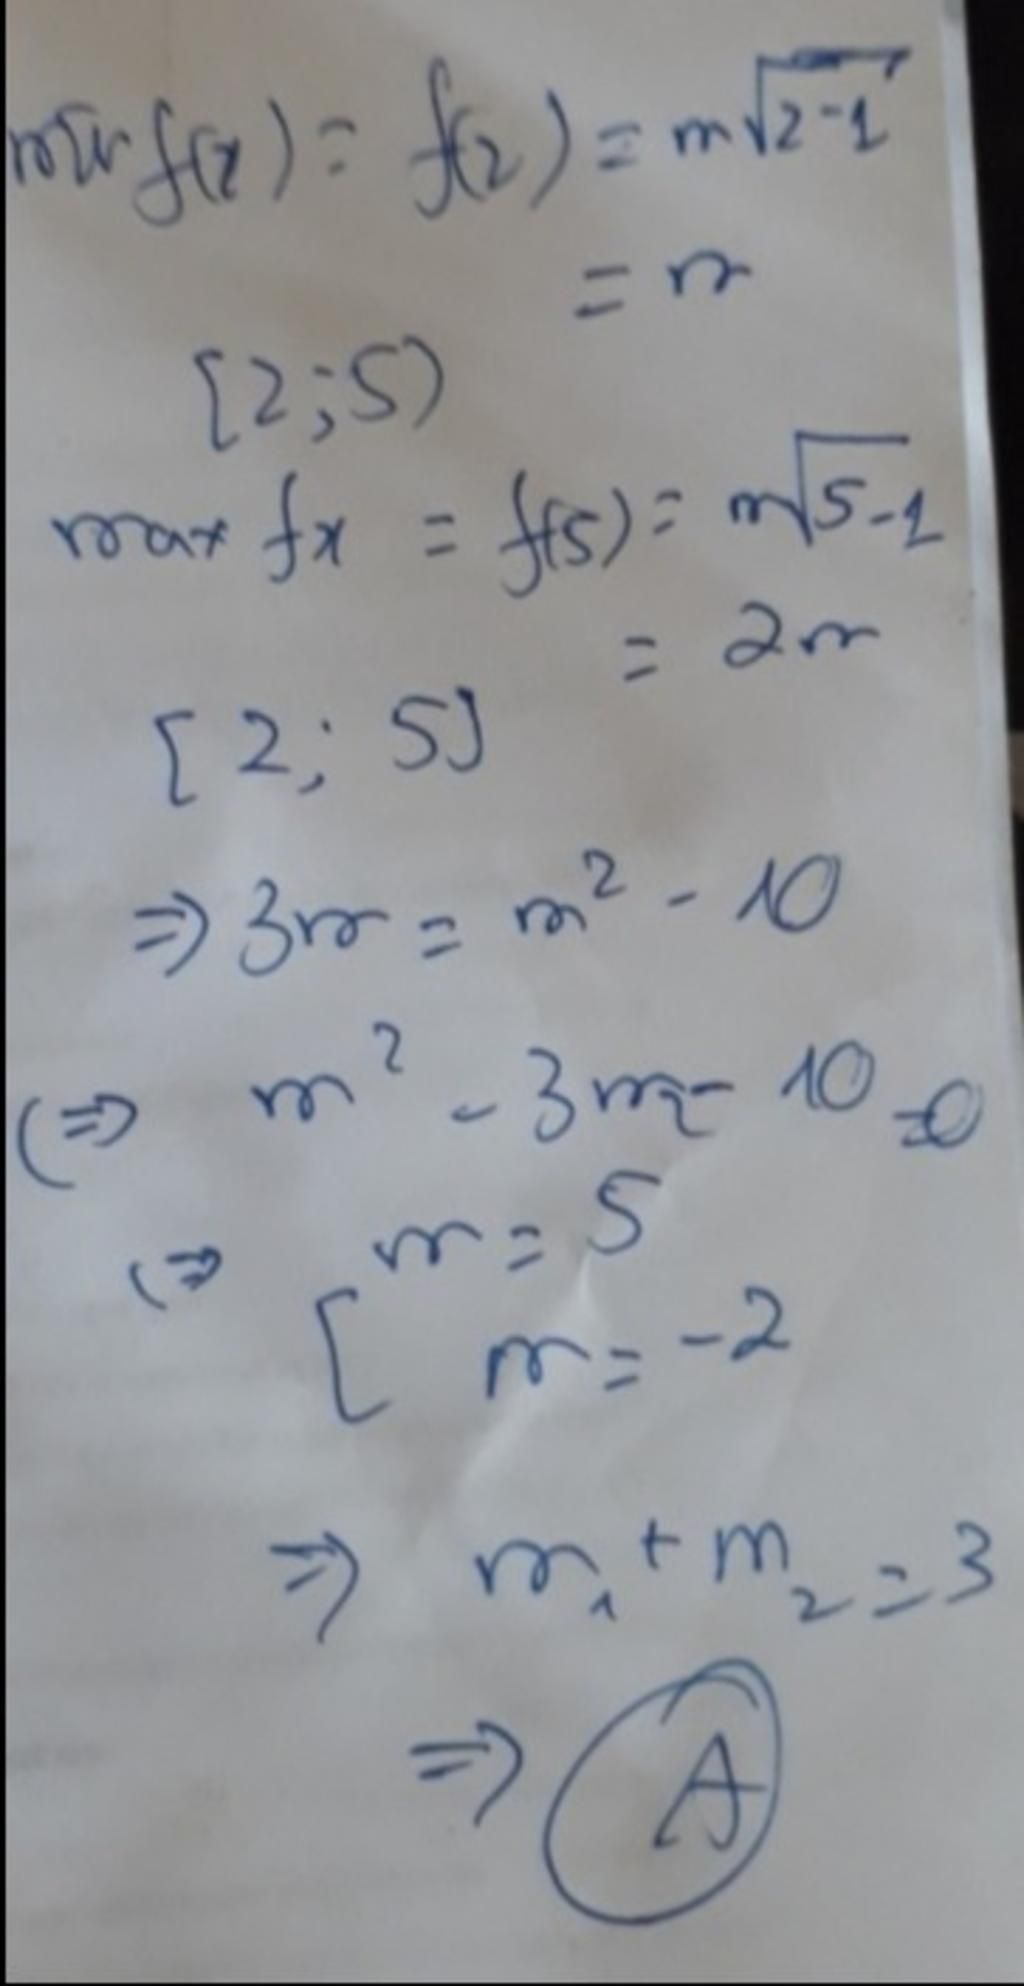 min f(x) = f(2) = m√2-1
= m
[2;5)
max fx = f(5) = m√5-1
= 2m
[2; 5]
=> 3m = m² - 10
(=> m² - 3m - 10 = 0
(=> m = 5
[ m = -2
=> m₁ + m₂ = 3
=> A